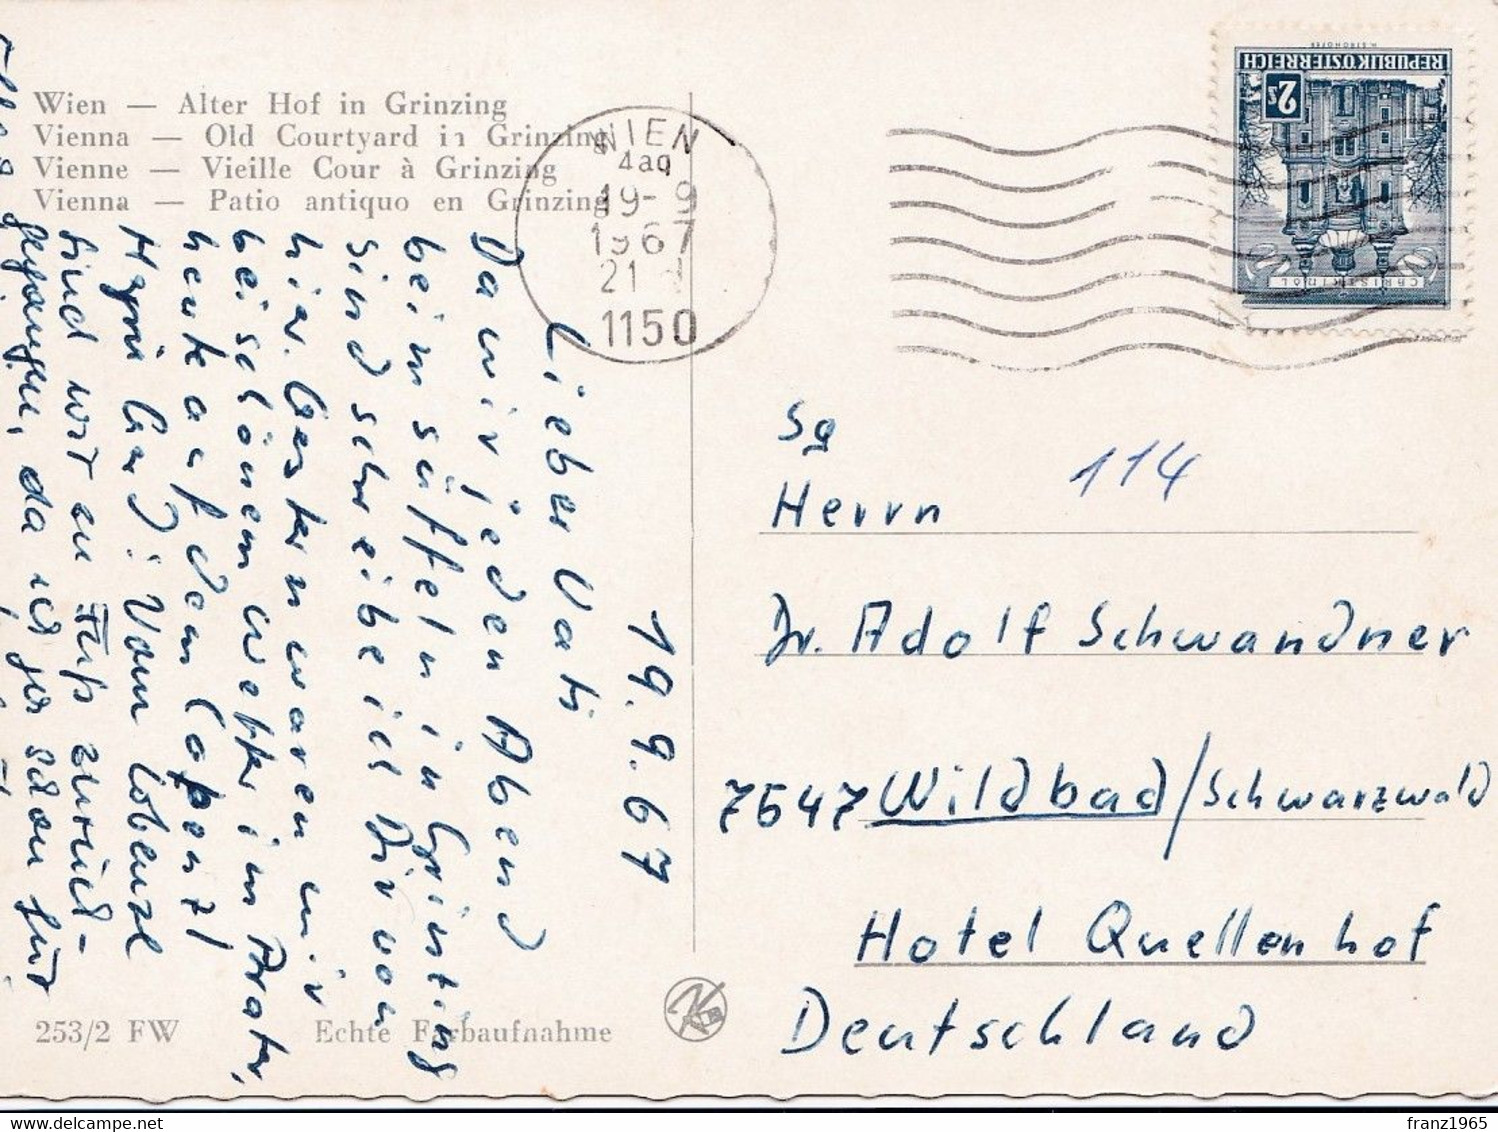 Wien — Alter Hof in Grinzing
Vienna — Old Courtyard in Grinzing
Vienne — Vieille Cour à Grinzing
Vienna — Patio antiquo en Grinzing
WIEN
4aq
19-9
1967
21
1150
REPUBLIK ÖSTERREICH
2s
CHRISTKINDL
H. STROHOFER
19.9.67
Lieber Vati
Da wir jeden Abend
beim süffeln in Grinzing
sind schreibe ich Dir von
hier. Gestern waren wir
bei schönem Wetter im Prater,
heute auf dem
Vom Cobenzl
sind wir zu Fuß zurück-
gegangen, da ich ja schon für
Sg
Herrn
114
Dr. Adolf Schwandner
7547 Wildbad/Schwarzwald
Hotel Quellenhof
Deutschland
253/2 FW
Echte Farbaufnahme
franz1965
delcampe.net